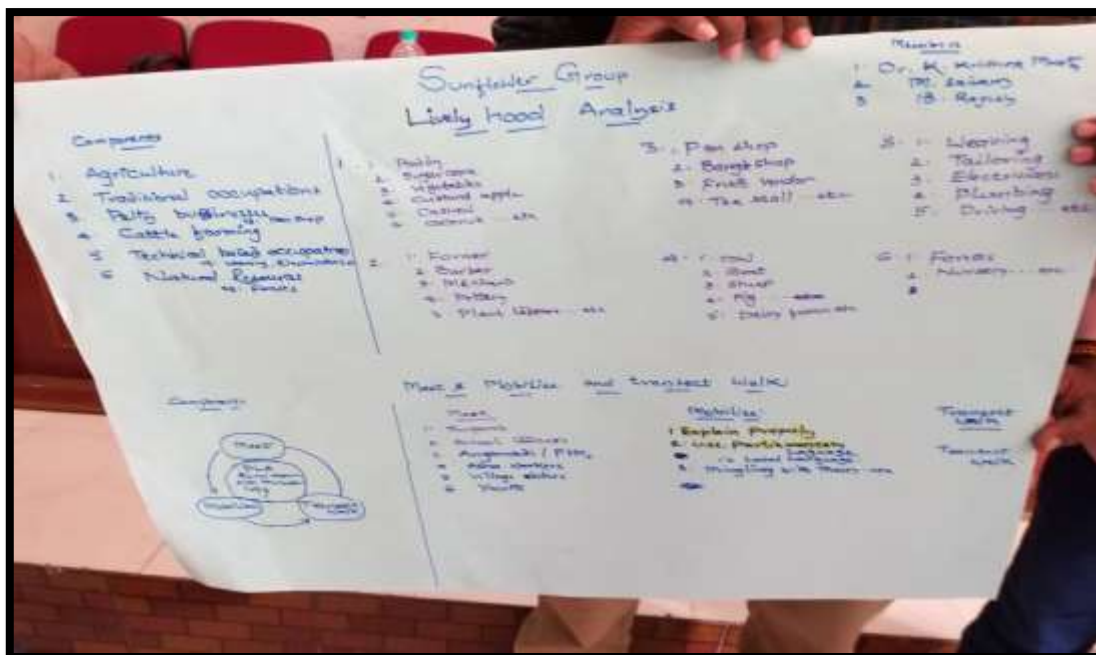 Sunflower Group
Lively hood Analysis
Members
1. Dr. K. Krishna
2. M.
3. B.
Components
1. Agriculture
2. Traditional occupations
3. Petty
4. Cattle farming
5. Technical based
6. Natural Resources
1. 1. Paddy
2. Sugarcane
3. Vegetables
4. Custard apple
5. Cashew
6. Coconut ... etc
2. 1. Farmer
2. Barber
3.
4. Pottery
5. Plant
3. 1. Pan shop
2. Bangle shop
3. Fruit vendor
4. Tea stall ... etc
4. 1. Cow
2. Goat
3. Sheep
4. Pig
5. Dairy farm etc
5. 1. Weaving
2. Tailoring
3. Electrician
4. Plumbing
5. Driving ... etc
6. 1. Forest
2. Nursery ... etc
Meet & Mobilize and transect walk
Components
Meet
Mobilize
Transect walk
Meet
1.
2.
3. Anganwadi /
4. Asha workers
5. Village elders
6. Youth
Mobilize
1. Explain Properly
2. Use
in Local Language
3. Mingling with them
Transect walk
Transect walk